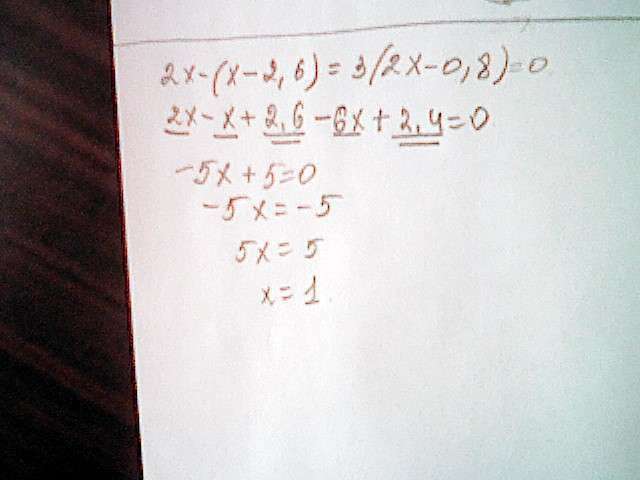 2x-(x-2,6)=3(2x-0,8)=0
2x-x+2,6-6x+2,4=0
-5x+5=0
-5x=-5
5x=5
x=1